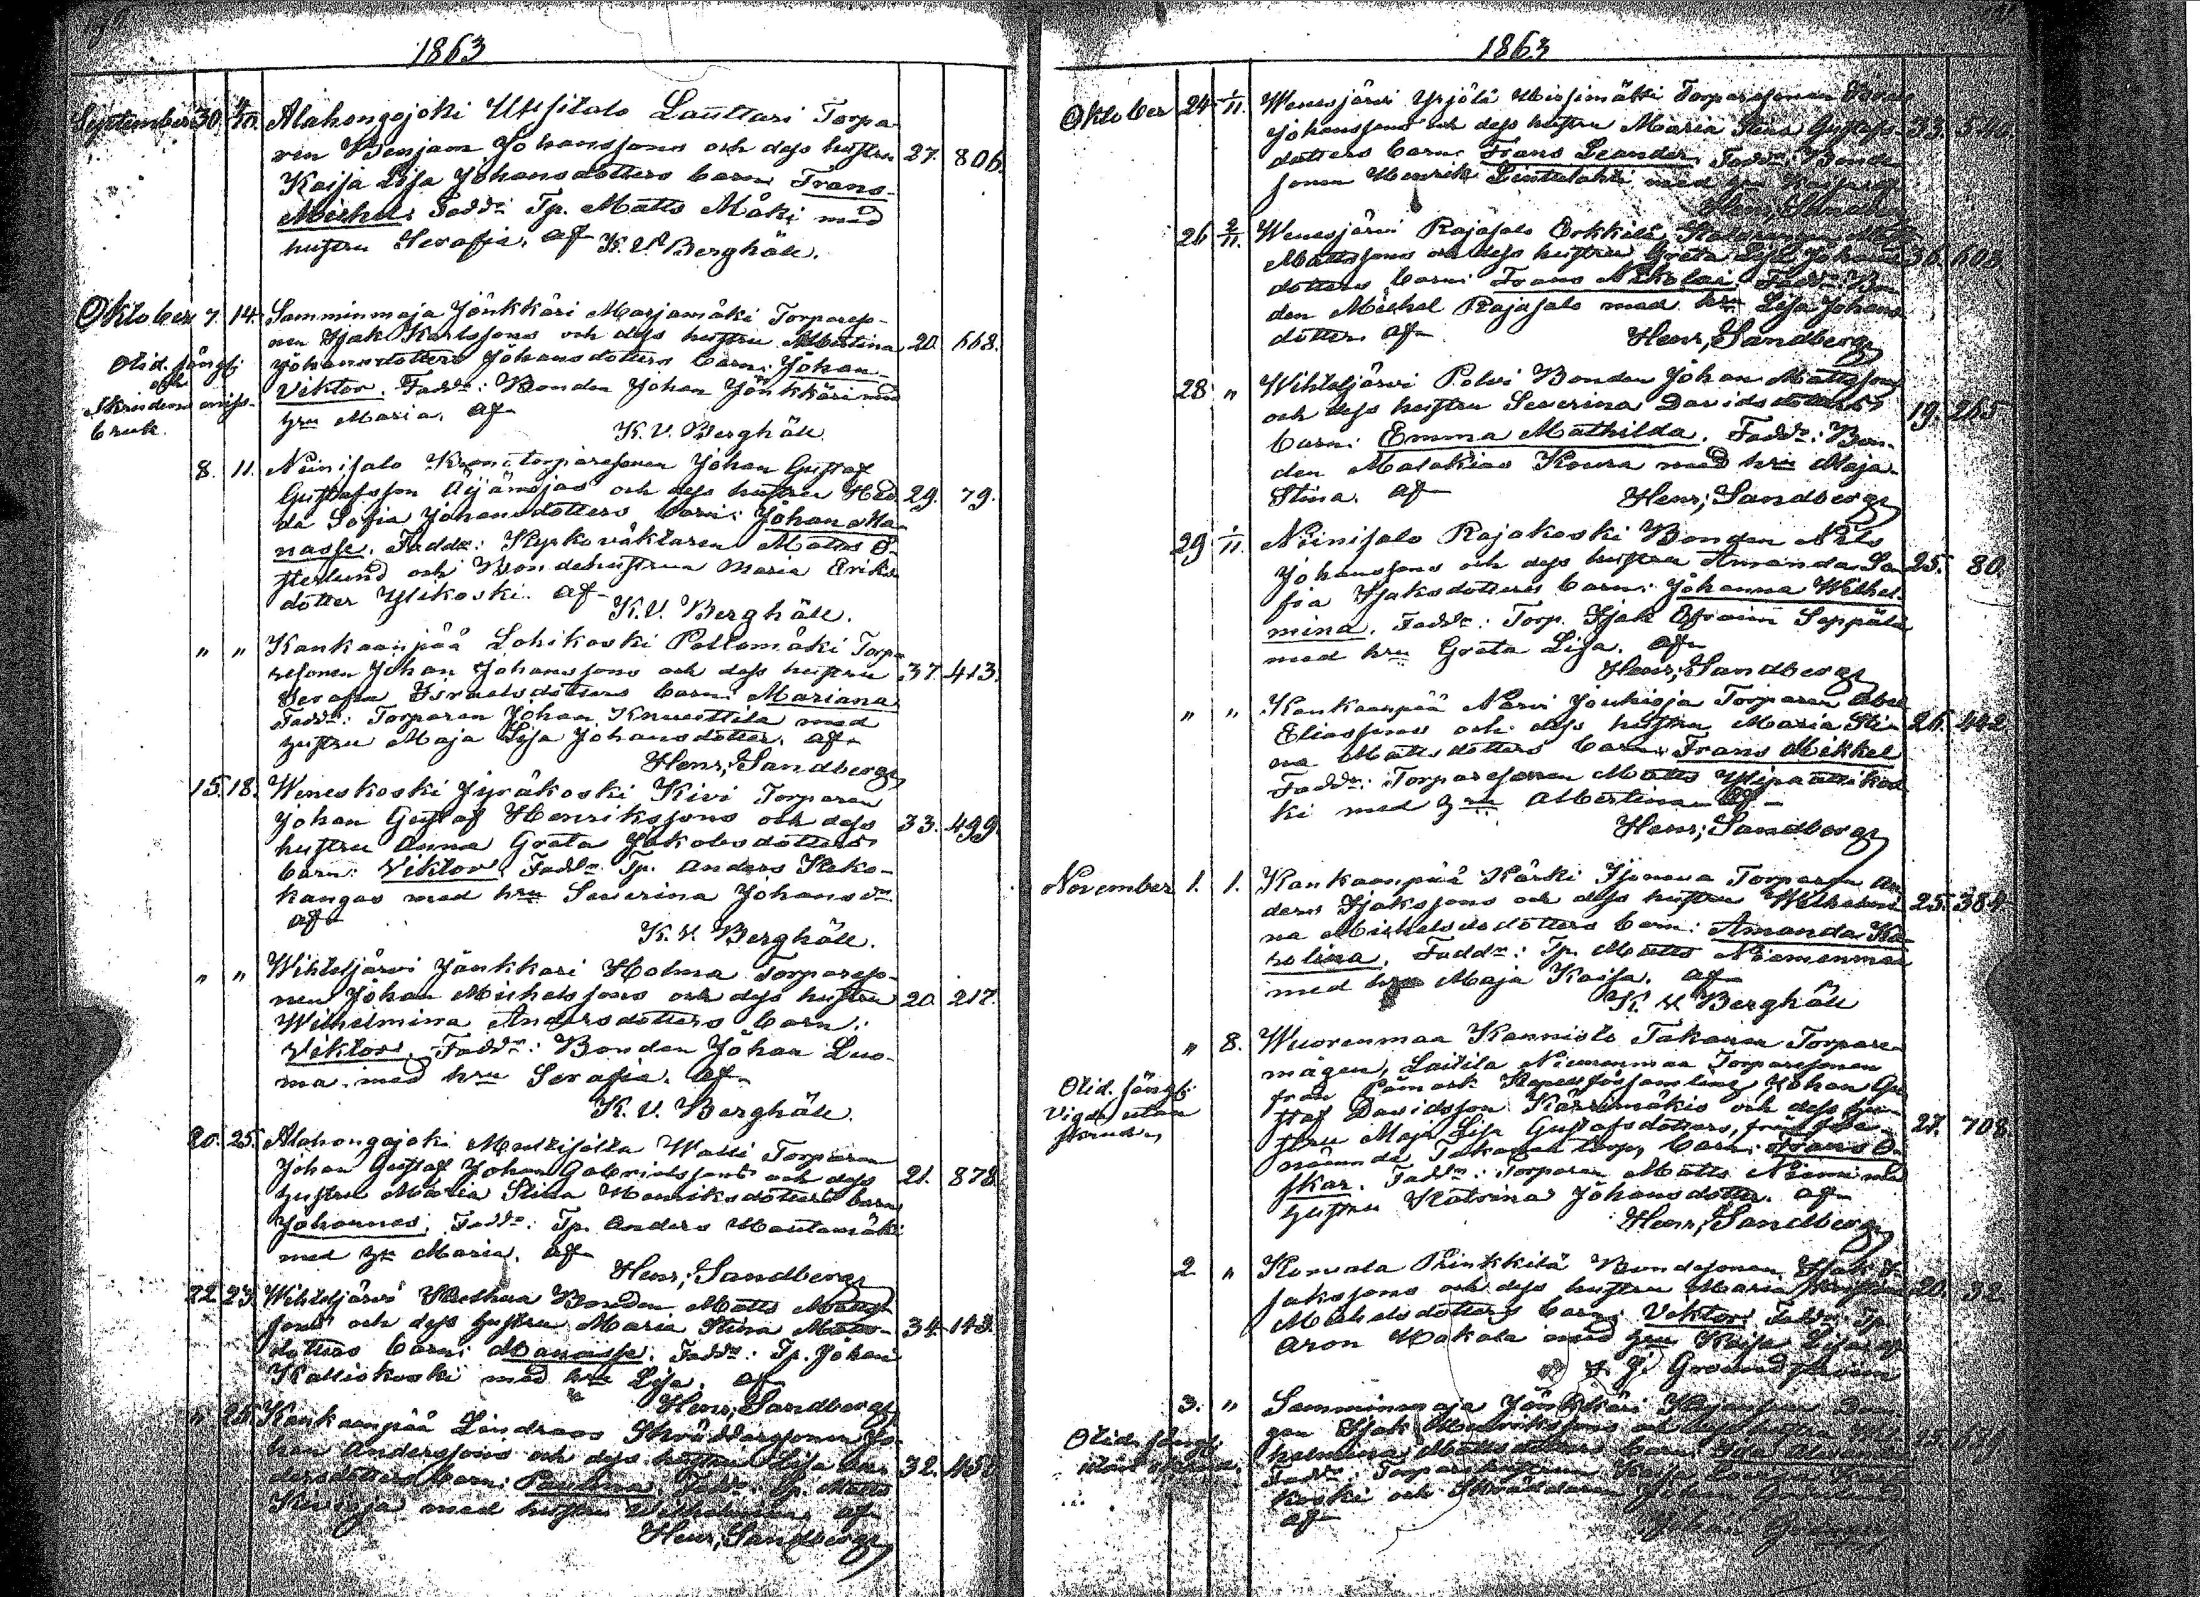 1863
September 30. 4/10. Alahongojoki Uusitalo Lauttari Torpa
ren Benjam Johanssons och dess hustru 27. 806.
Kaisa Lisa Johansdotters barn: Frans
Michel. Fadd: Tp. Matts Mäki med
hustru Serafia. af K. V. Berghäll.
Oktober 7. 14. Samminmaja Jönkkäri Marjamäki Torpareso-
nen Isak Karlssons och dess hustru Albertina 20. 668.
Johansdotters Johansdotters barn: Johan
Viktor. Fadd: Bonden Johan Jönkkäri med
hru Maria. af
K. V. Berghäll
8. 11. Niinisalo Kronotorparesonen Johan Gustaf
Gustafsson Äijänojas och dess hustru Hed 29. 79.
da Sofia Johansdotters barn: Johan Ma-
nasse. Fadd: Kyrkoväktaren Matts Ö-
sterlund och Bondehustrun Maria Eriks
dotter Ylikoski. af
K. V. Berghäll.
" " Kankaanpää Lohikoski Pollomäki Torpa
resonen Johan Johanssons och dess hustru 37. 413.
Serafia Israelsdotters barn: Mariana
Fadd: Torparen Johan Knuuttila med
hustru Maja Lisa Johansdotter. af
Henr; Sandberg
15. 18. Weneskoski Jyräkoski Kivi Torparen
Johan Gustaf Henrikssons och dess 33. 499.
hustru Anna Greta Jakobsdotters
barn: Viktor. Fadd: Tp. Anders Keko-
kangas med hru Severina Johansd.
af
K. V. Berghäll.
" " Wihteljärvi Jänkkari Holma Torpareso-
nen Johan Michelssons och dess hustru 20. 217.
Wilhelmina Andersdotters barn:
Viktor. Fadd: Bonden Johan Luo-
ma med hru Serafia. af
K. V. Berghäll.
20. 25. Alahongojoki Walli Torparen
Johan Gustaf Johan Gabrielssons och dess 21. 878.
hustru Maria Stina Henriksdotters barn
Johannes. Fadd: Tp. Anders Mantamäki
med hru Maria. af
Henr; Sandberg
22. 23. Wihteljärvi Bonden Matts Matts
sons och dess hustru Maria Stina Matts- 34. 143.
dotters barn: Manasse. Fadd: Tp. Johan
Kalliokoski med hru Lisa. af
Henr; Sandberg
" 25. Kankaanpää Lindroos Skräddarsonen Jo-
han Anderssons och dess hustru Lisa An- 32.
dersdotters barn: Paulina. Fadd: Tp. Matts
med hustru Wilhelmina af
Henr; Sandberg
1863
Oktober 24. 1/11. Wenesjärvi Yrjölä Torparesonen
Johanssons och dess hustru Maria Stina Gustafs- 33.
dotters barn: Frans Leander. Fadd: Bonde
sonen Henrik med hru Kaisa af
Henr; Sandberg
26 2/11. Wenesjärvi Rajasalo Erkkilä
Mattssons och dess hustru Greta Lisa Johans 36. 603.
dotters barn: Frans Nikolai. Fadd: Bon
den Michel Rajasalo med hru Lisa Johans
dotter. af Henr; Sandberg
28 " Wihteljärvi Polvi Bonden Johan Mattssons
och dess hustru Severina Davidsdotters 19. 265
barn: Emma Mathilda. Fadd: Bon-
den Malakias Koura med hru Maja
Stina. af Henr; Sandberg
29 1/11. Niinisalo Rajakoski Bonden Nils
Johanssons och dess hustru Amanda So 25. 80.
fia Isaksdotters barn: Johanna Wilhel
mina. Fadd: Torp. Isak Efraim Seppälä
med hru Greta Lisa. af
Henr; Sandberg
" " Kankaanpää Närvi Torparen Abel
Eliassons och dess hustru Maria Sti- 26. 442
na Mattsdotters barn: Frans Mikkel
Fadd: Torparesonen Matts
ki med hru Albertina af
Henr; Sandberg
November 1. 1. Kankaanpää Kärki Torparen An
ders Isakssons och dess hustru Wilhelmi 25. 384.
na Michelsdotters barn: Amanda Ka-
rolina. Fadd: Tp. Matts Niemenmaa
med hru Maja Kaisa. af
K. V. Berghäll
" 8. Wuorenmaa Kannisto Takanen Torpare
mågen, Laitila Niemenmaa Torparesonen
från Påmark Kapellförsamling Johan Gu
staf Davidsson och dess hu-
stru Maja Lisa Gustafsdotters, från 27. 708.
nämnde Takanen torp, barn: Frans O-
skar. Fadd: Torparen Matts Niemi med
hustru Katrina Johansdotter. af
Henr; Sandberg
2 " Korvala Pinkkilä Bondesonen Isak I-
sakssons och dess hustru Maria 20. 32.
Michelsdotters barn: Viktor. Fadd: Tp
Aron Makala med hru Kaisa Lisa af
Grounstroem
3. " Samminmaja Jönkkäri Bon
den Isak Henrikssons och dess hustru Wil
helmina Mattsdotters barn: Ida
Fadd: Torparehustrun Kaisa
koski och Skräddaren Johan
af